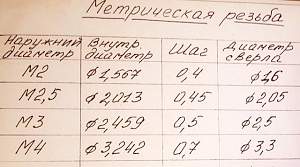 Метрическая резьба
Наружний диаметр Внутр. диаметр Шаг Диаметр сверла
М2 ø1,567 0,4 ø1,6
М2,5 ø2,013 0,45 ø2,05
М3 ø2,459 0,5 ø2,5
М4 ø3,242 0,7 ø3,3